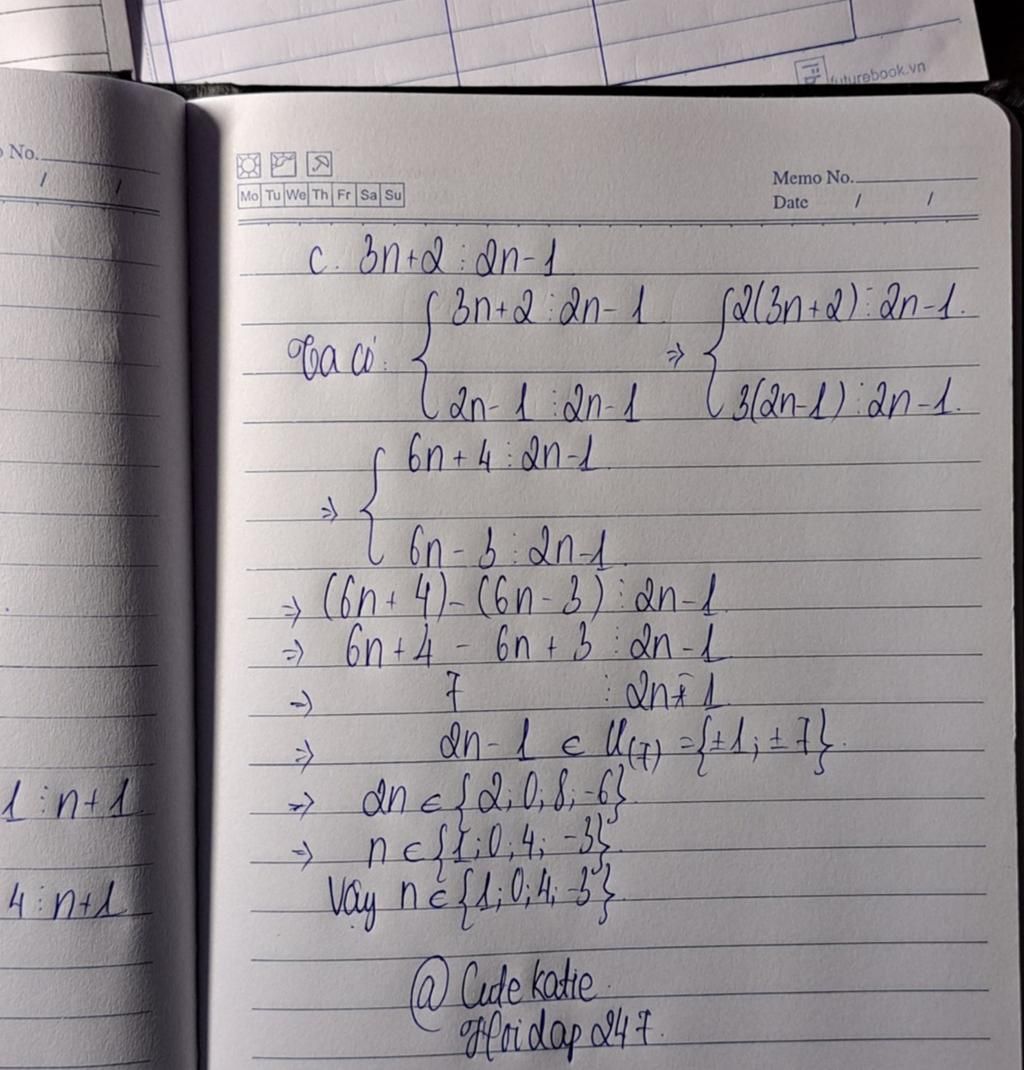 futurebook.vn
No.
/ /
1 ⋮ n+1
4 ⋮ n+1
Mo Tu We Th Fr Sa Su
Memo No.
Date / /
c. 3n+2 ⋮ 2n-1
Ta có: { 3n+2 ⋮ 2n-1 ⇒ { 2(3n+2) ⋮ 2n-1.
2n-1 ⋮ 2n-1 3(2n-1) ⋮ 2n-1.
⇒ { 6n+4 ⋮ 2n-1
6n-3 ⋮ 2n-1
⇒ (6n+4)-(6n-3) ⋮ 2n-1
⇒ 6n+4 - 6n+3 ⋮ 2n-1
⇒ 7 ⋮ 2n-1
⇒ 2n-1 ∈ Ư(7) = {±1; ±7}.
⇒ 2n ∈ {2; 0; 8; -6}
⇒ n ∈ {1; 0; 4; -3}
Vậy n ∈ {1; 0; 4; -3}
@ Cutekatie.
Hoidap247.